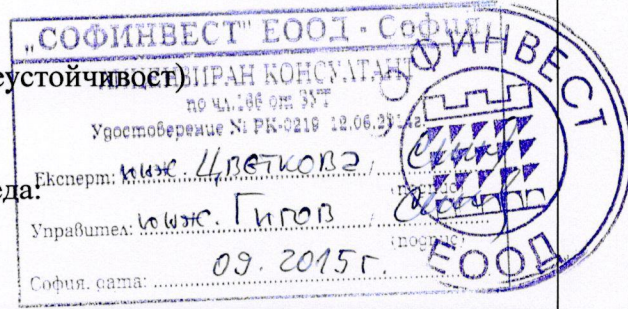 „СОФИНВЕСТ" ЕООД - София
еустойчивост)
ЛИЦЕНЗИРАН КОНСУЛТАНТ
по чл.166 от ЗУТ
Удостоверение № РК-0219 12.06.2014г.
Експерт: инж. Цветкова /
(подпис)
еда:
Управител: инж. Гигов /
(подпис)
София, дата: 09. 2015 г.
СОФИНВЕСТ
ЕООД